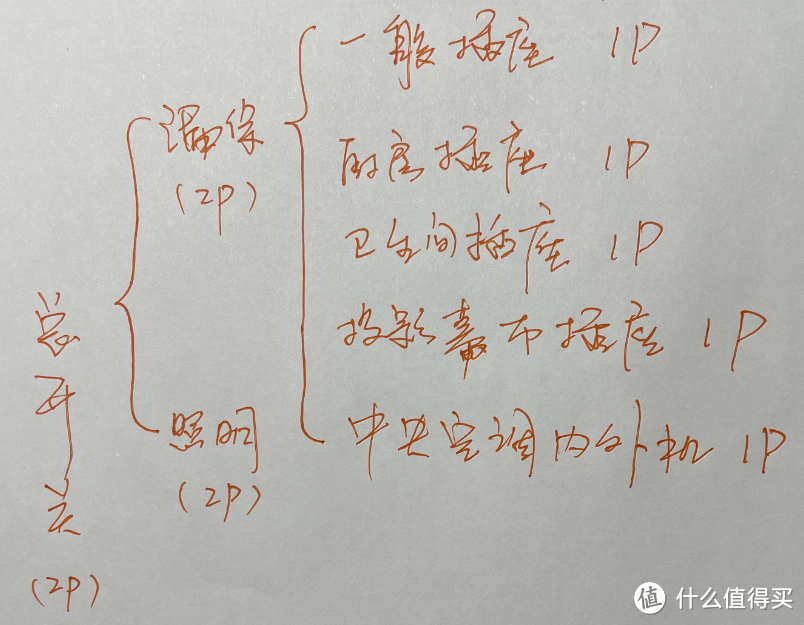 总开关
(2P)
漏保
(2P)
照明
(2P)
一般插座 1P
厨房插座 1P
卫生间插座 1P
投影幕布插座 1P
中央空调内外机 1P
值 什么值得买